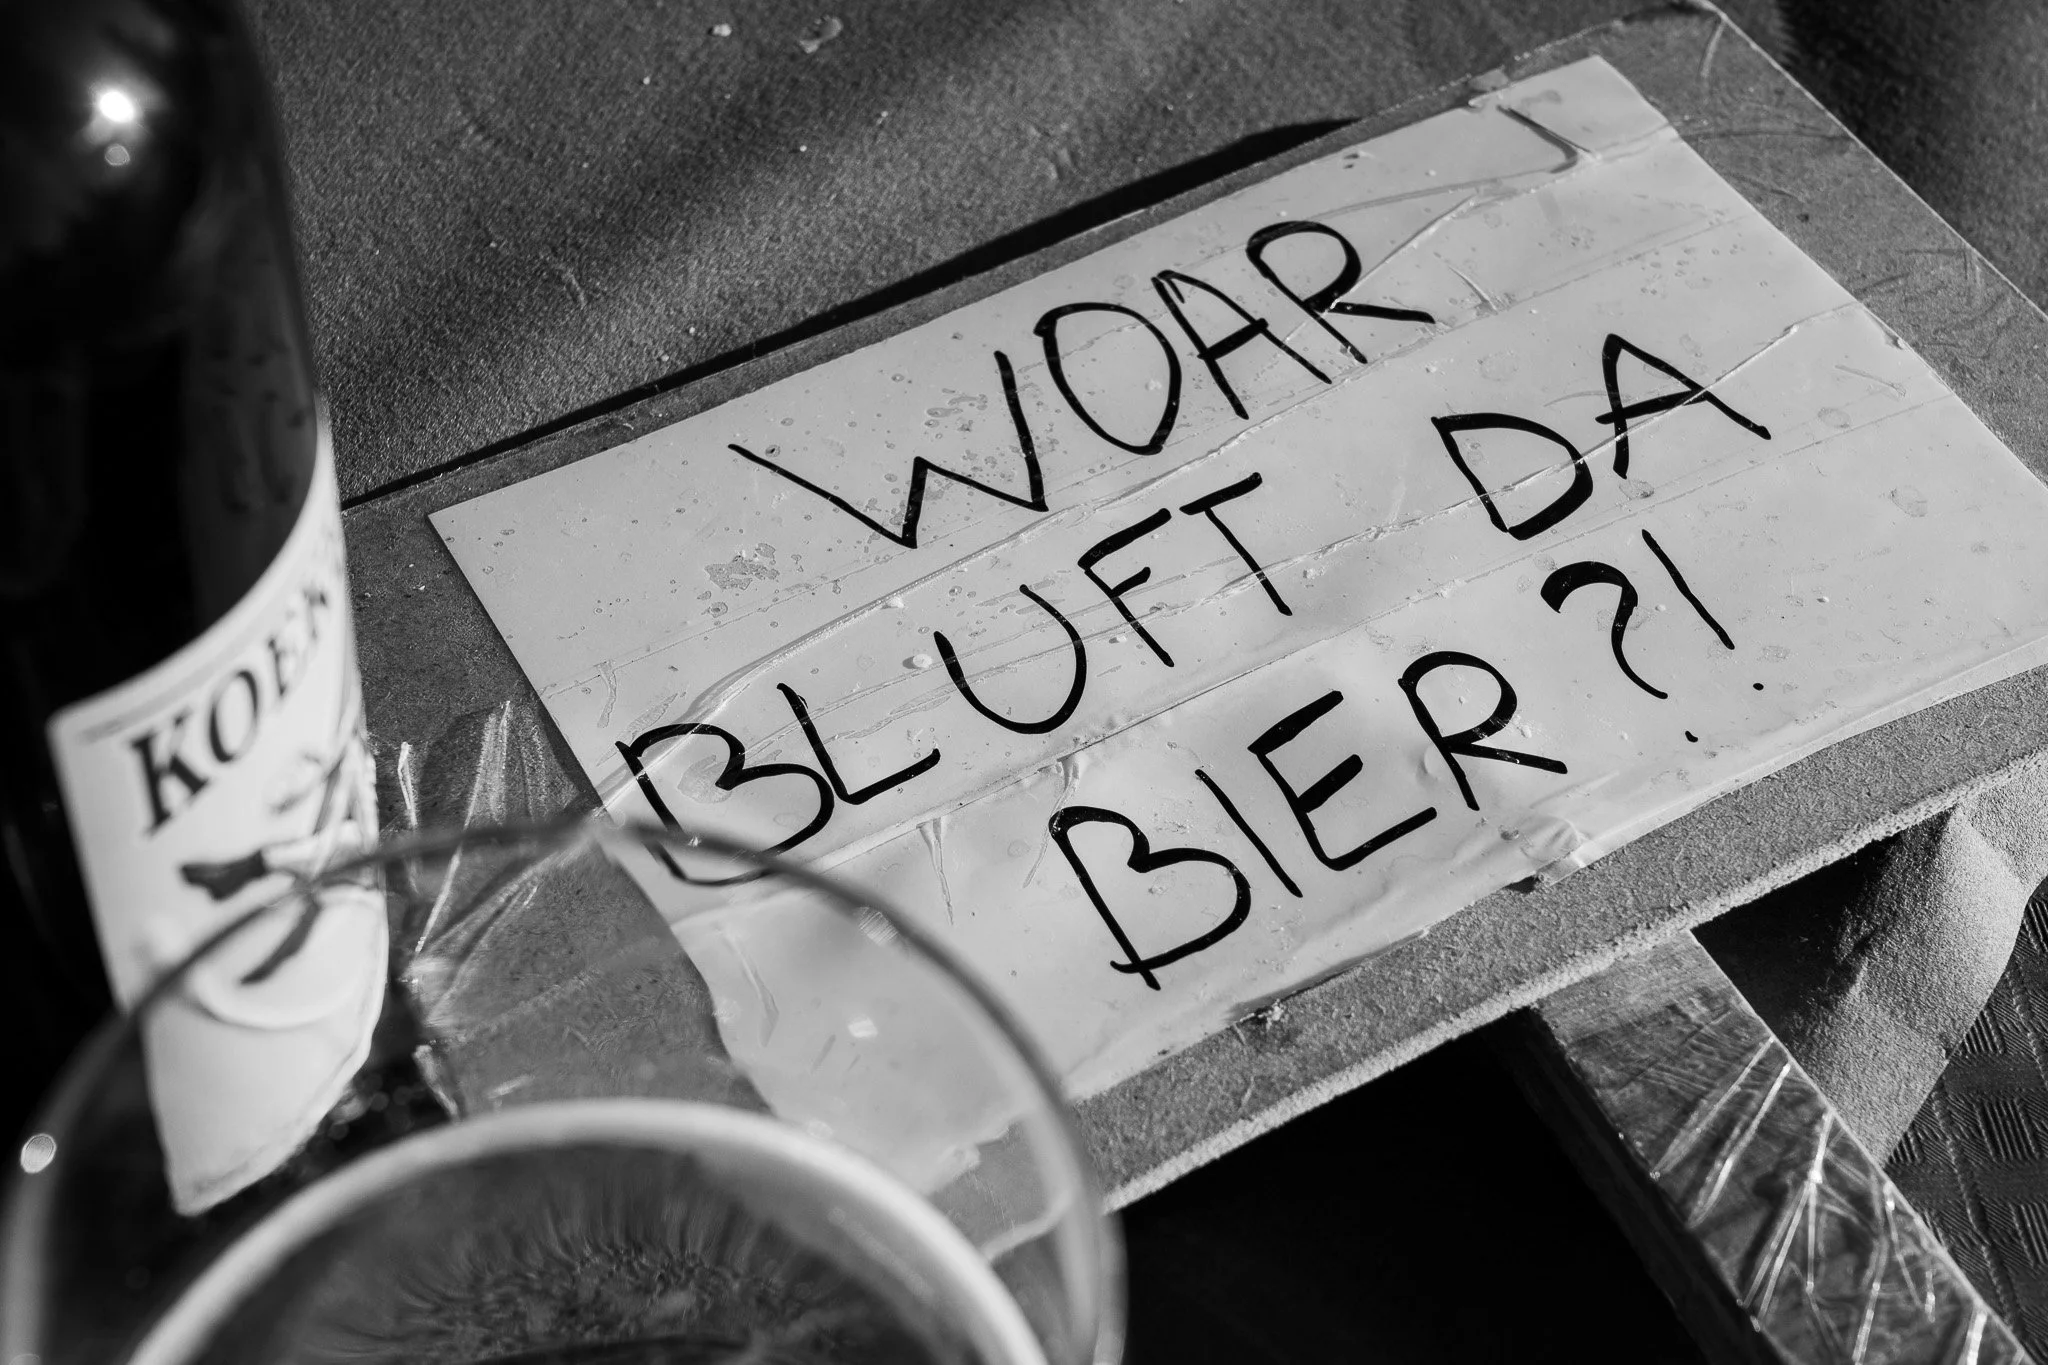 WOAR
BLUFT DA
BIER?!